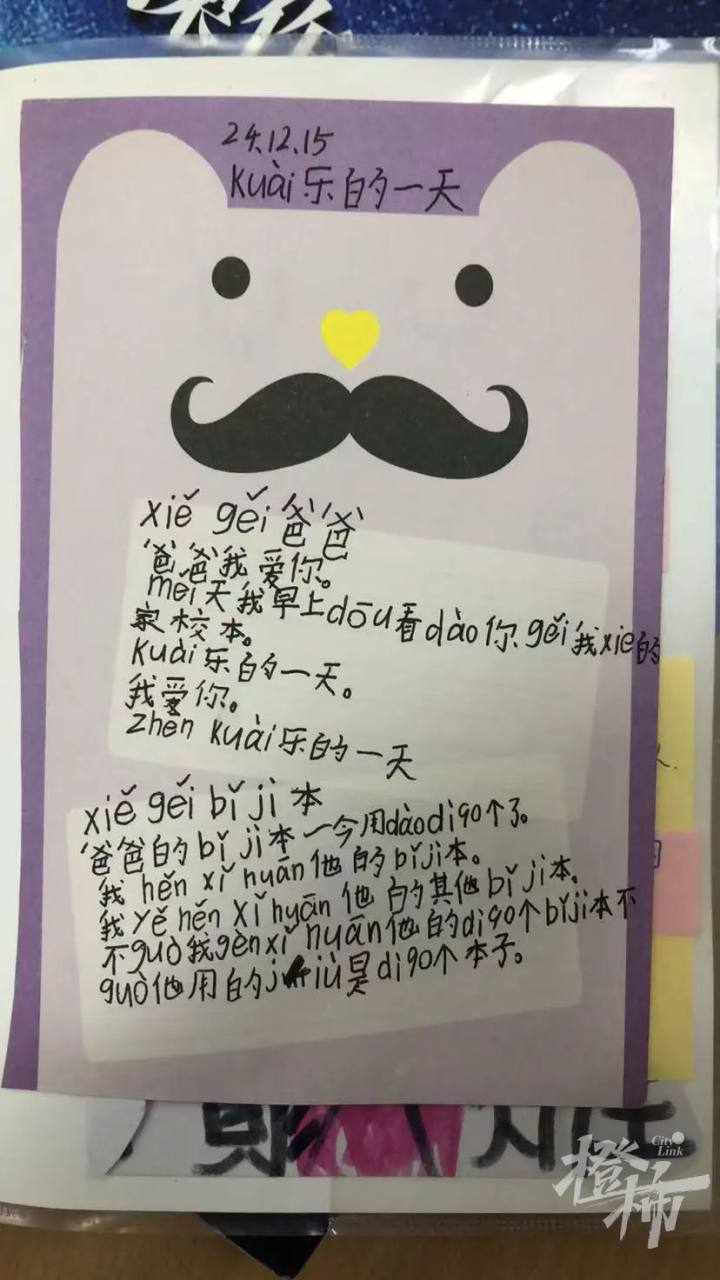 24.12.15
kuài乐的一天
xiě gěi 爸爸
爸爸我爱你。
měi天我早上dōu看dào你gěi我xie的
家校本。
kuài乐的一天。
我爱你。
zhēn kuài乐的一天
xiě gěi bǐ jì 本
爸爸的bǐ jì本一今用dào dì 90个了。
我 hěn xǐ huān 他的bǐ jì本。
我 yě hěn xǐ huān 他的其他 bǐ jì 本。
不guò我gèn xǐ huān他的dì 90个bǐ jì本不
guò他用的 jiù是dì 90个本子。
City Link
橙柿